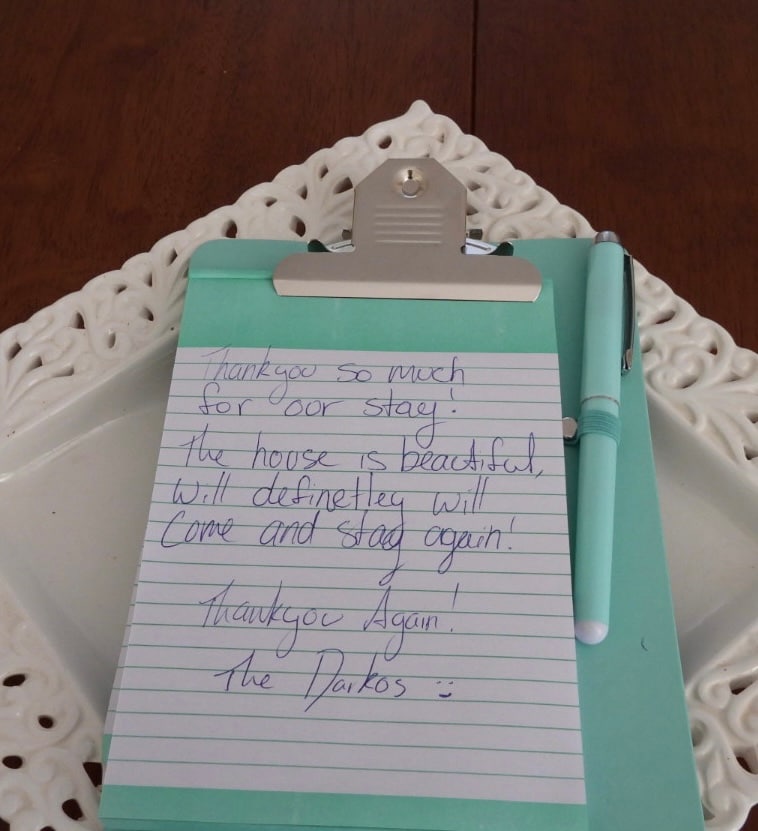 Thankyou so much
for our stay!
The house is beautiful,
Will definetley will
Come and stay again!
Thankyou Again!
The Darkos :)